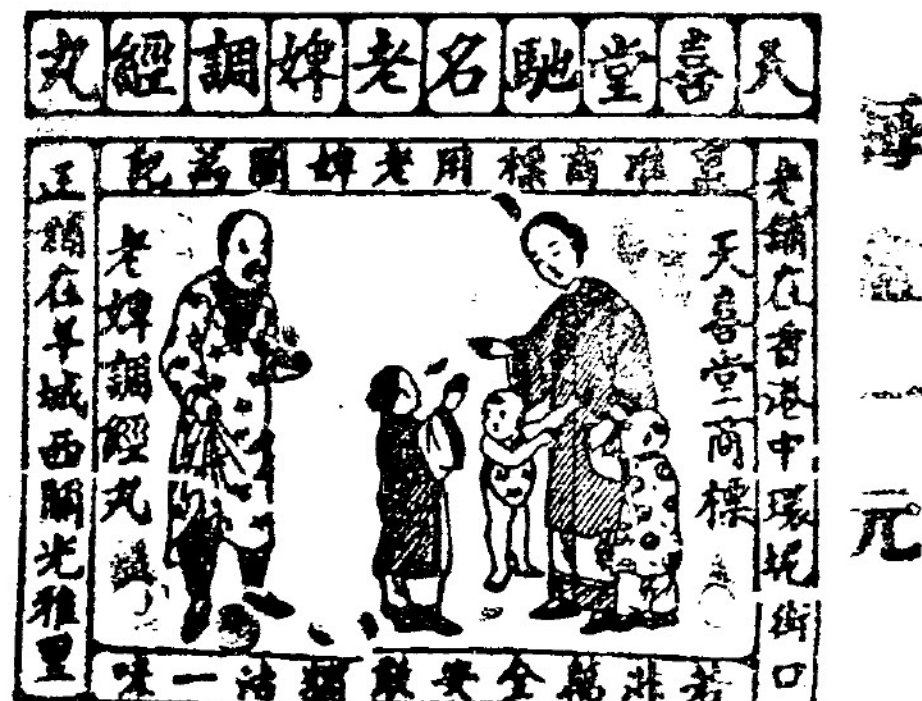 天喜堂馳名老婢調經丸
准商標用老婢圖爲記
老舖在香港中環坭街口
天喜堂商標
老婢調經丸
正舖在羊城西關光雅里
若非萬全安敢獨沽一味
一元